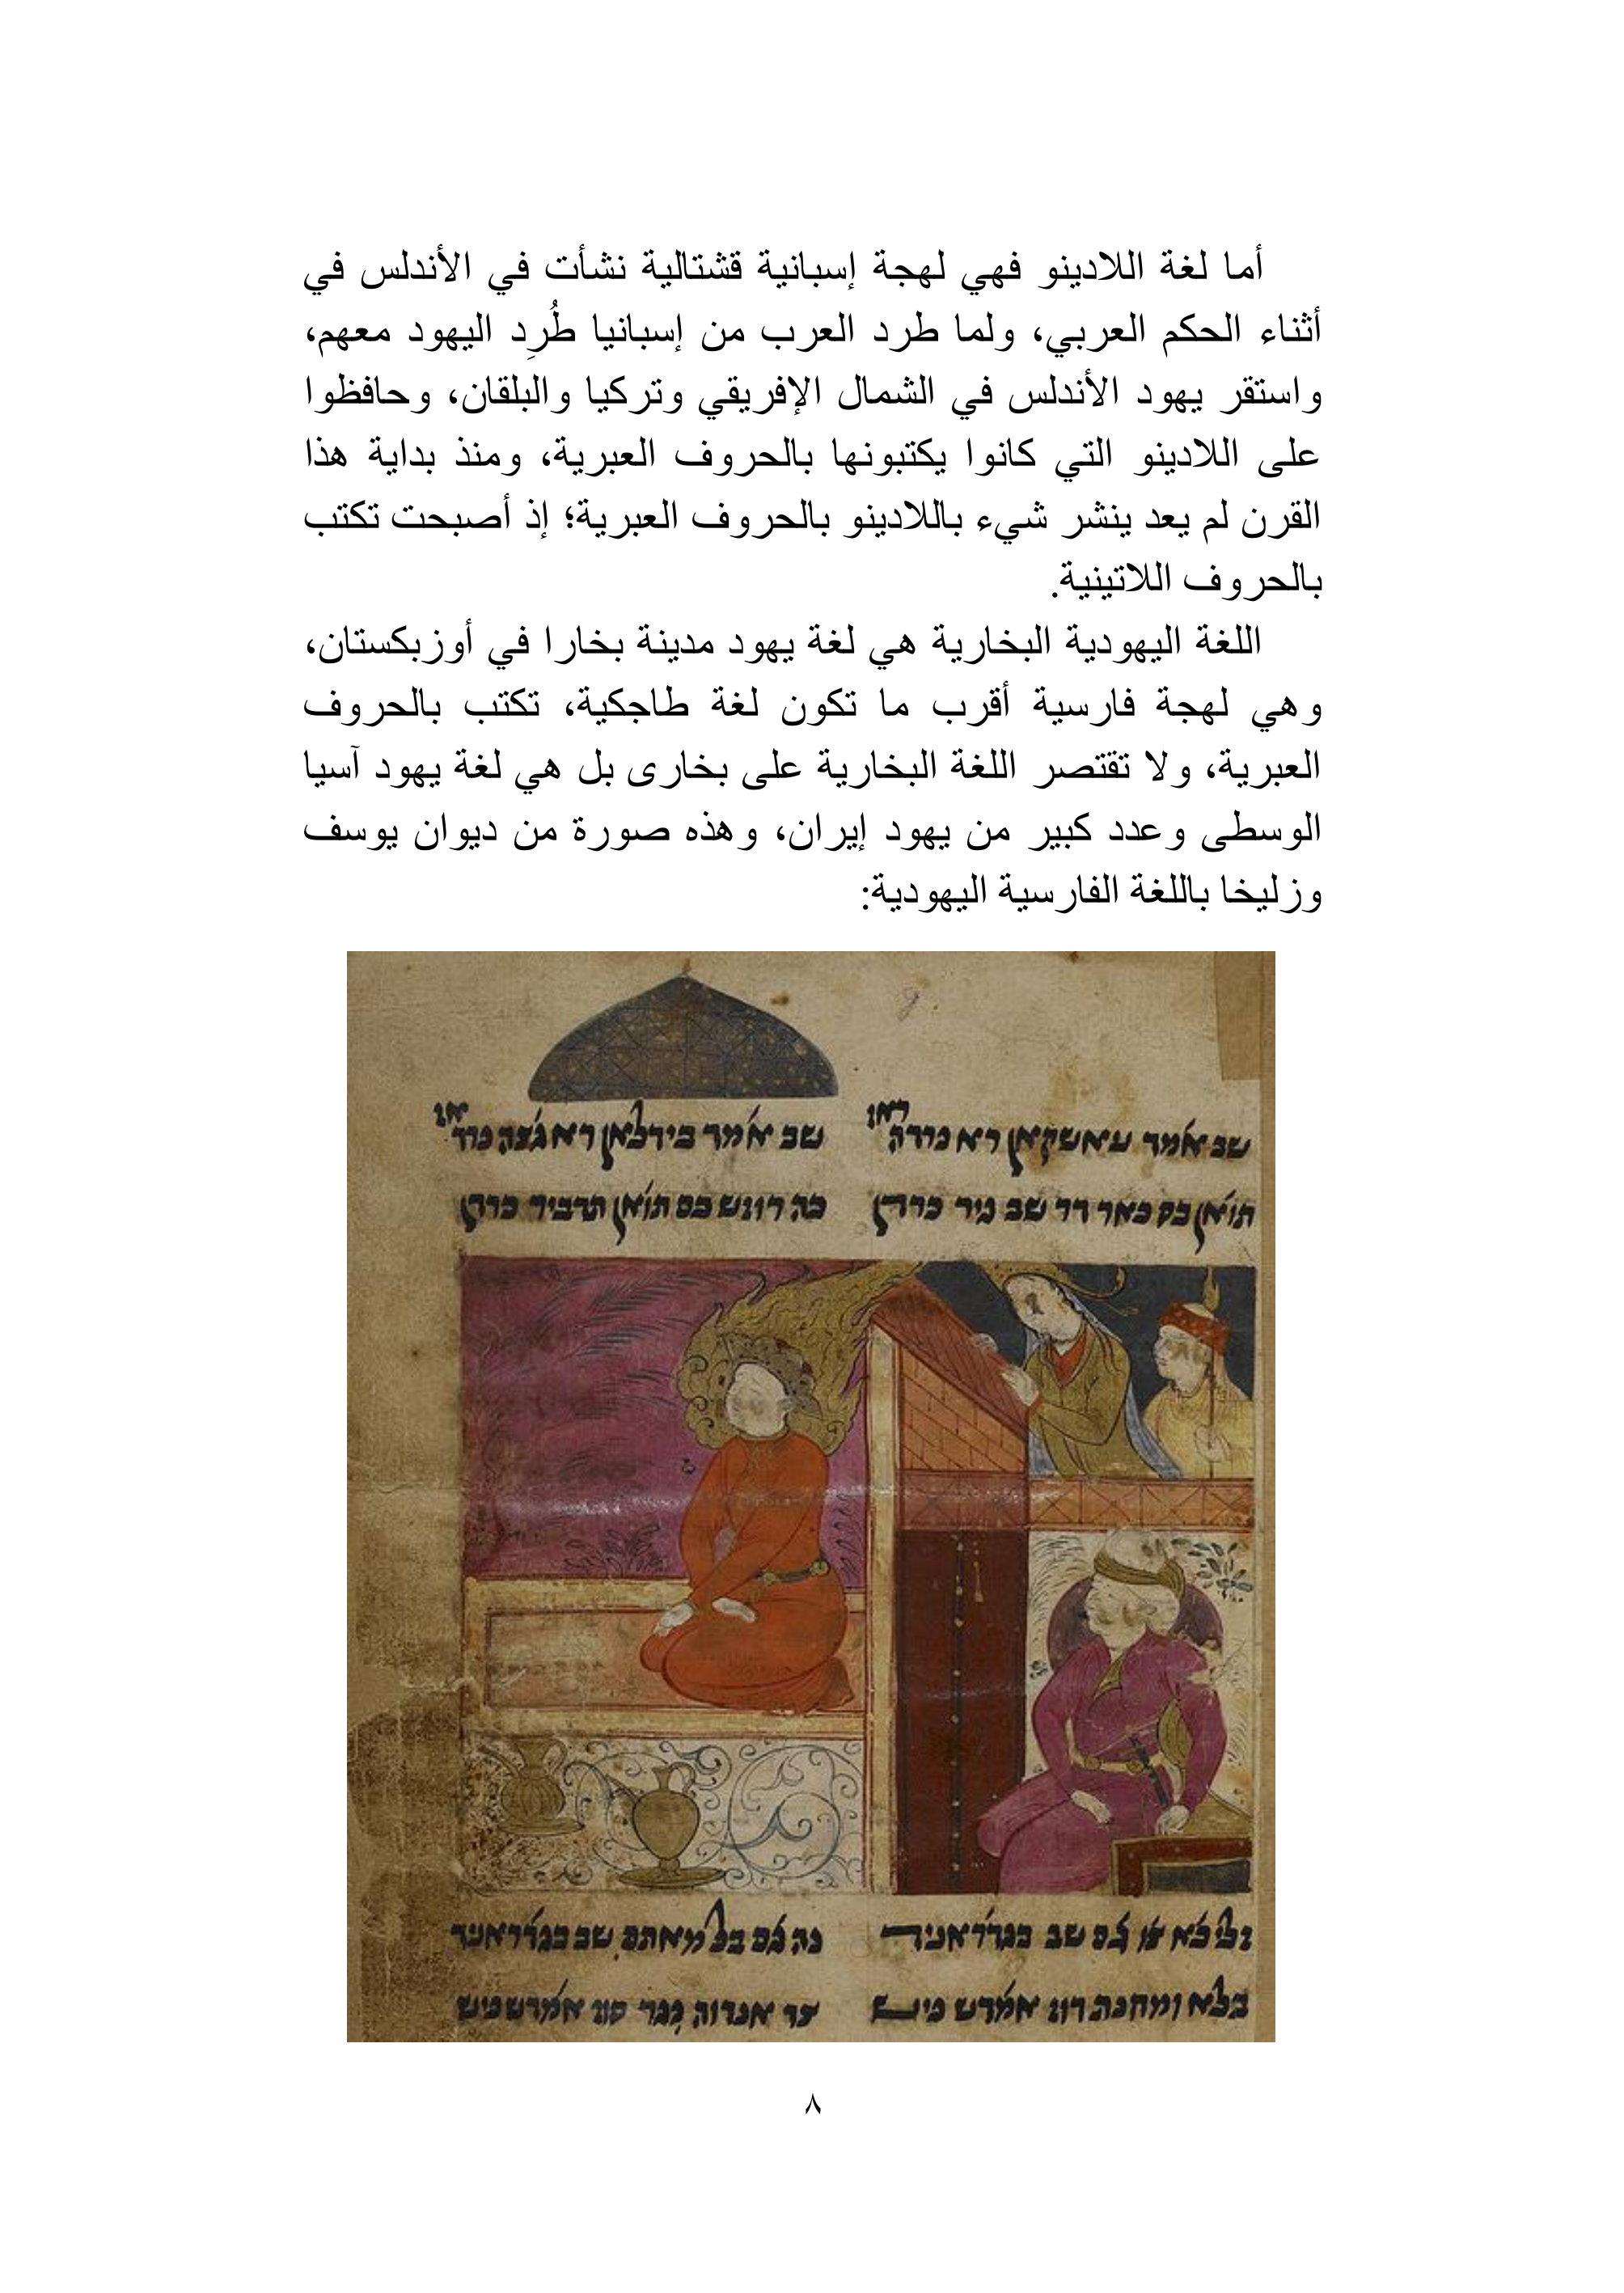 أما لغة اللادينو فهي لهجة إسبانية قشتالية نشأت في الأندلس في
أثناء الحكم العربي، ولما طرد العرب من إسبانيا طُرِد اليهود معهم،
واستقر يهود الأندلس في الشمال الإفريقي وتركيا والبلقان، وحافظوا
على اللادينو التي كانوا يكتبونها بالحروف العبرية، ومنذ بداية هذا
القرن لم يعد ينشر شيء باللادينو بالحروف العبرية؛ إذ أصبحت تكتب
بالحروف اللاتينية.
اللغة اليهودية البخارية هي لغة يهود مدينة بخارا في أوزبكستان،
وهي لهجة فارسية أقرب ما تكون لغة طاجكية، تكتب بالحروف
العبرية، ولا تقتصر اللغة البخارية على بخارى بل هي لغة يهود آسيا
الوسطى وعدد كبير من يهود إيران، وهذه صورة من ديوان يوسف
وزليخا باللغة الفارسية اليهودية:
שב אמד עאשקאן רא פרדה שב אמד בידלאן רא
תואן בס כאר דר שב גיר כרדן כה רוזש כס תואן תדביר כרדן
٨